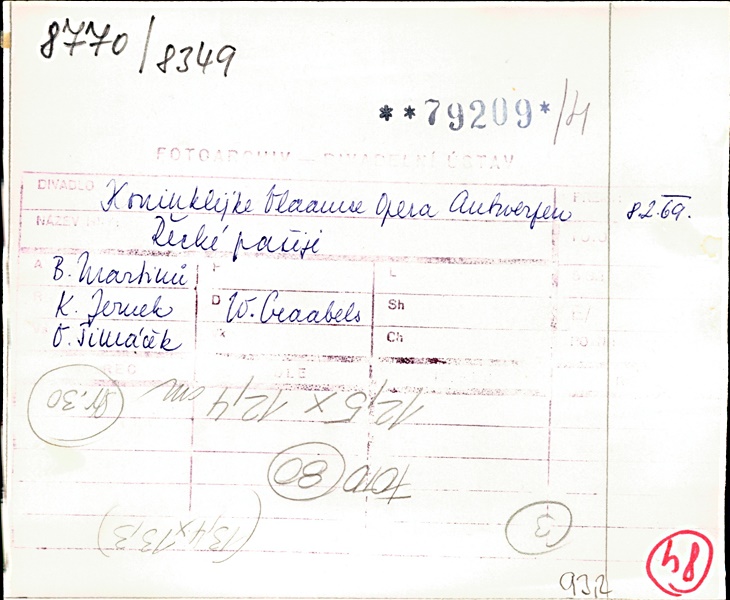 8770/8349
**79209*/4
FOTOARCHIV – DIVADELNÍ ÚSTAV
DIVADLO Koninklijke Vlaamse Opera Antwerpen 8.2.69.
NÁZEV
Řecké pašije
A B. Martinů
R K. Jernek D W. Craabels Sh
O. Šimáček Ch
str. 30 12,5 x 12,4 cm
foto 80
(13,4 x 13,3)
3
84
932